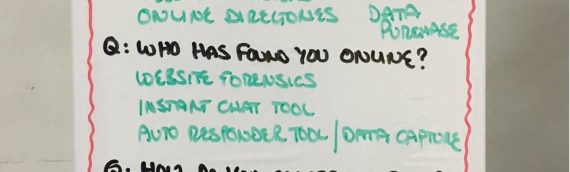 ONLINE DIRECTORIES DATA PURCHASE
Q: WHO HAS FOUND YOU ONLINE?
WEBSITE FORENSICS
INSTANT CHAT TOOL
AUTO RESPONDER TOOL / DATA CAPTURE
Q: HOW DO YOU